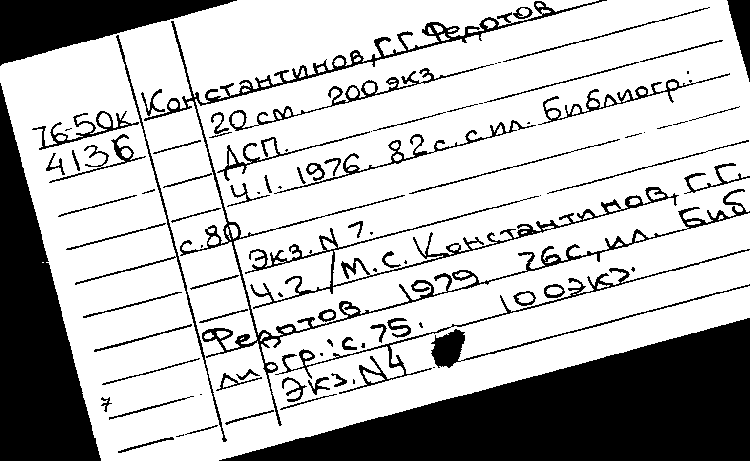 Константинов, Г.Г. Федотов
76-50к
4136
20 см. 200 экз.
ДСП.
Ч.1. 1976. 82 с. с ил. Библиогр.:
с. 80.
Экз. N 7.
Ч.2. / М.С. Константинов, Г.Г.
Федотов. 1979. 76с., ил. Биб
лиогр.: с. 75. 100экз.
Экз. N4
7